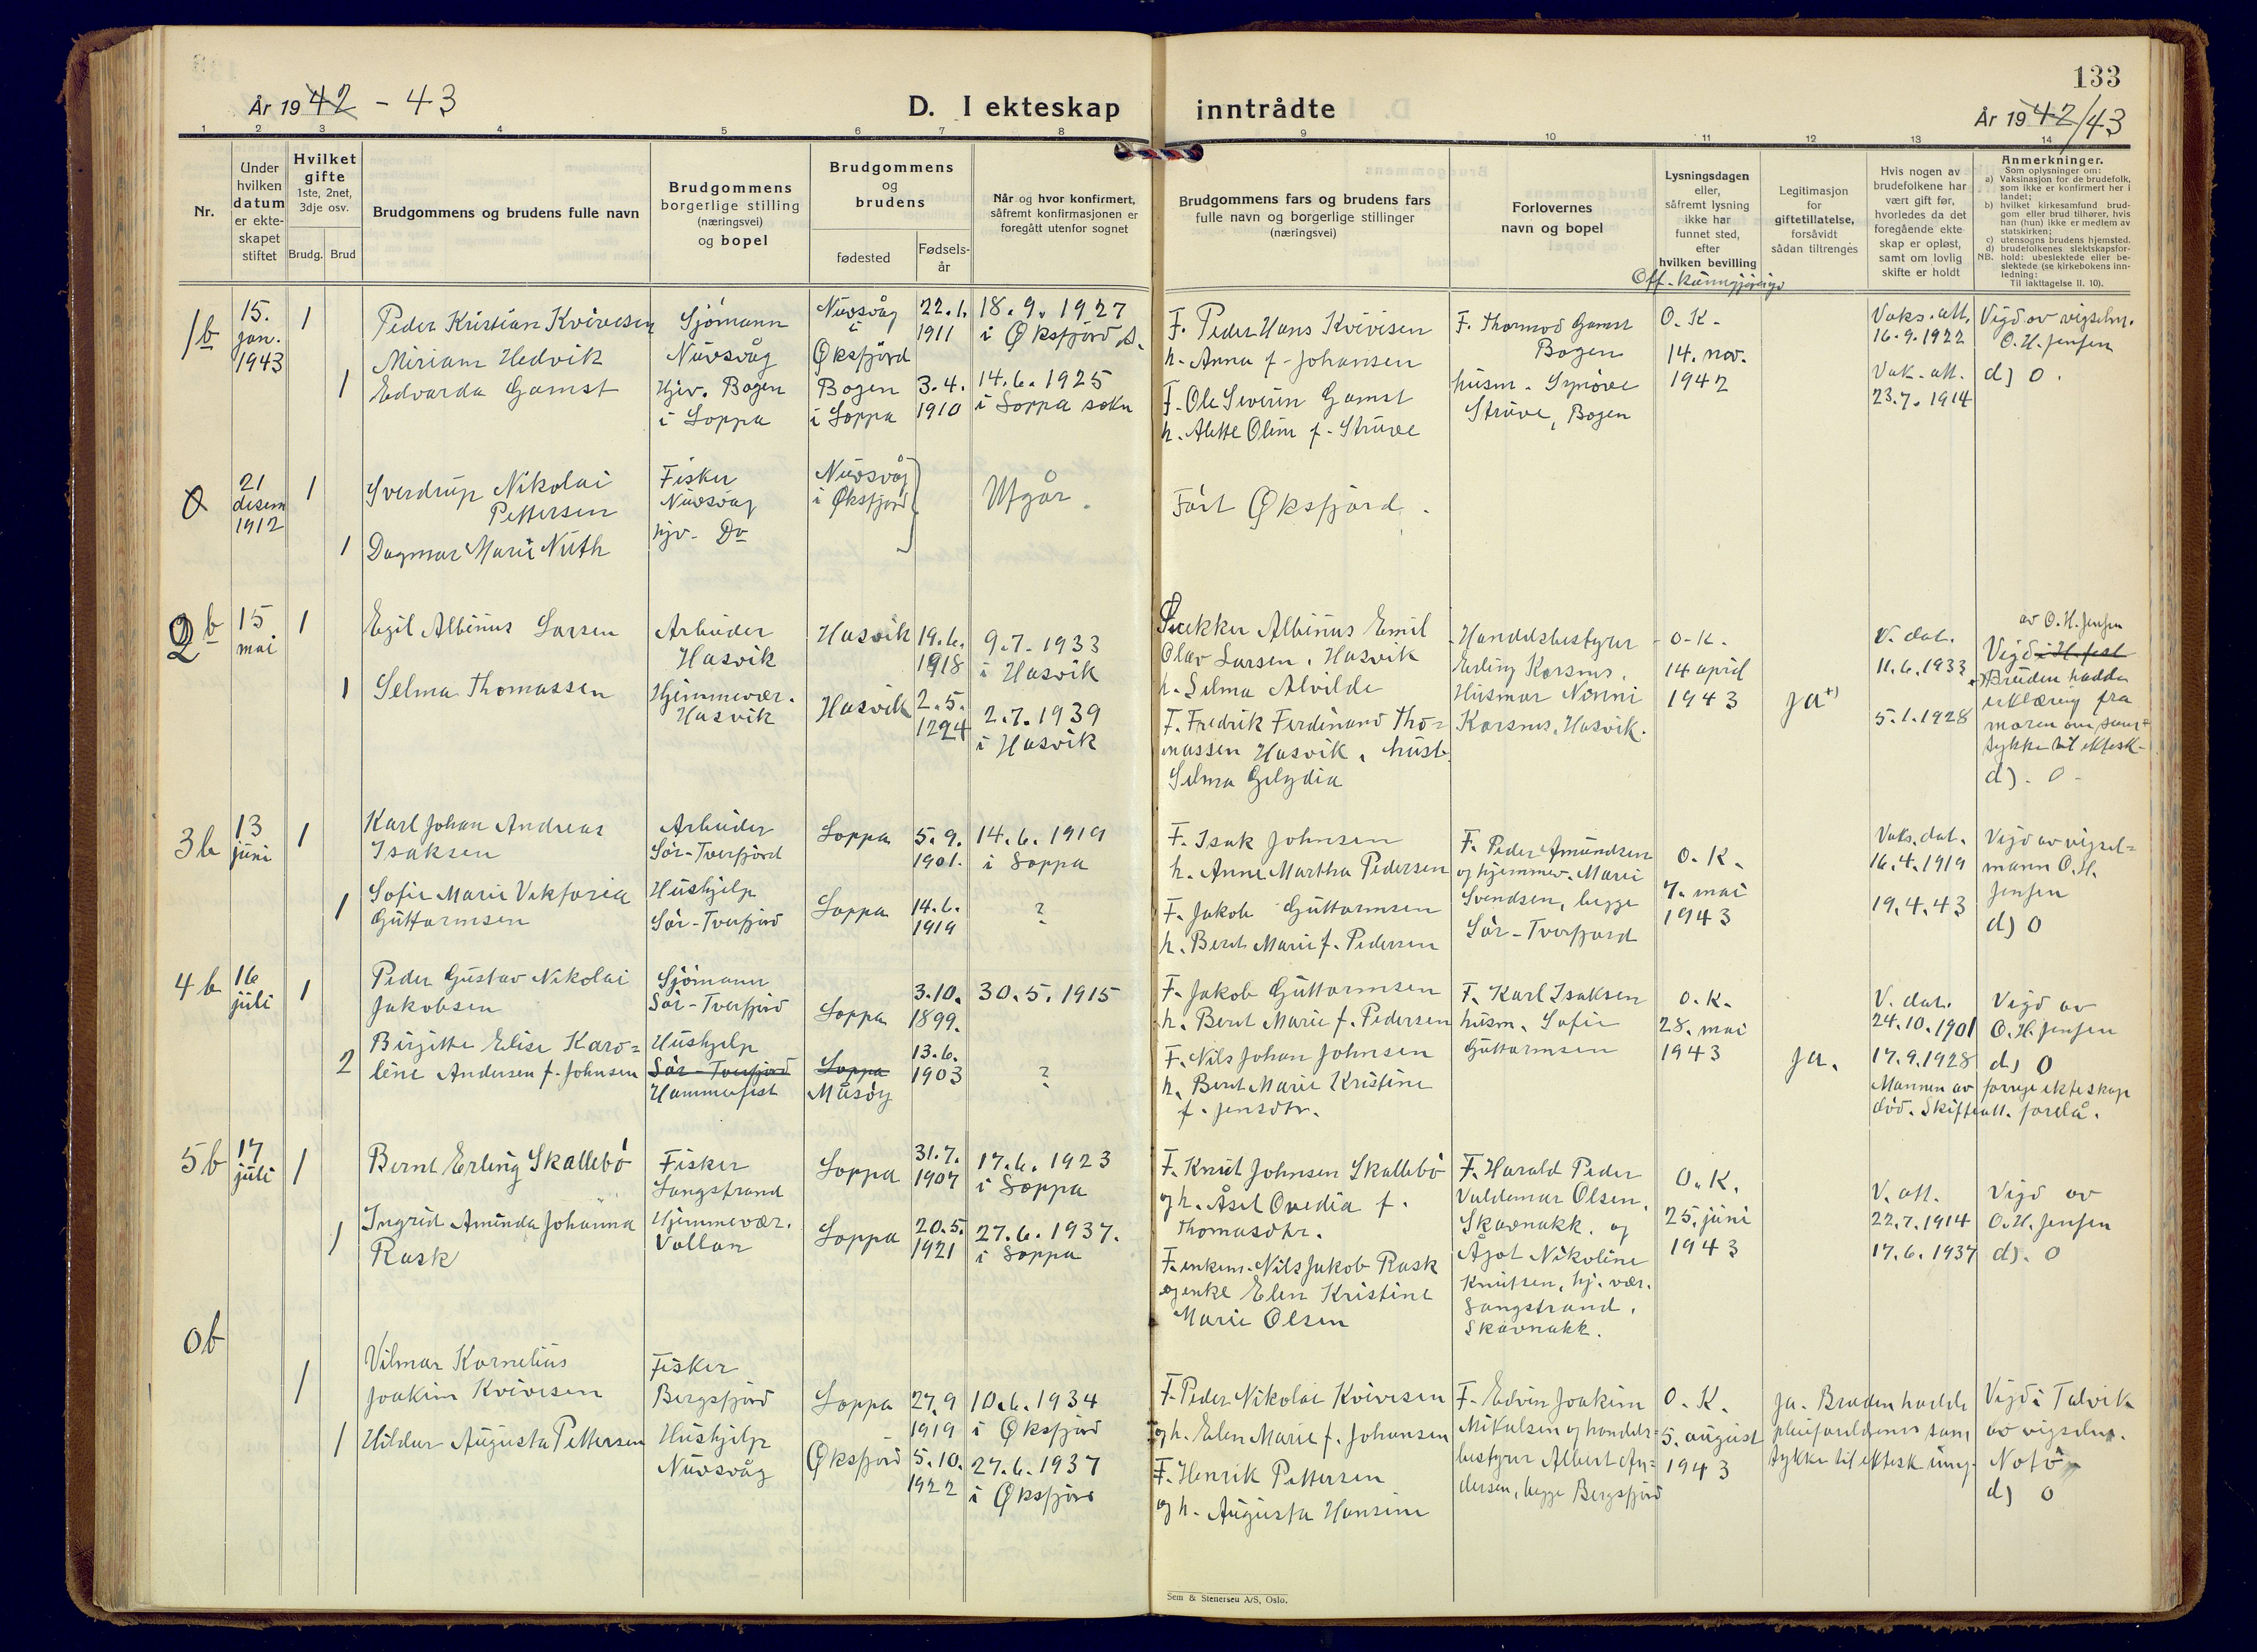 133
År 1942 - 43
D. I ekteskap inntrådte
År 1942/43
1 2 3 4 5 6 7 8 9 10 11 12 13 14
Nr.
Under hvilken datum er ekteskapet stiftet
Hvilket gifte
1ste, 2net, 3dje osv.
Brudg. Brud
Brudgommens og brudens fulle navn
Brudgommens borgerlige stilling (næringsvei) og bopel
Brudgommens og brudens
fødested
Fødselsår
Når og hvor konfirmert, såfremt konfirmasjonen er foregått utenfor sognet
Brudgommens fars og brudens fars fulle navn og borgerlige stillinger (næringsvei)
Forlovernes navn og bopel
Lysningsdagen eller, såfremt lysning ikke har funnet sted, efter hvilken bevilling
Legitimasjon for giftetillatelse, forsåvidt sådan tiltrenges
Hvis nogen av brudefolkene har vært gift før, hvorledes da det foregående ekteskap er opløst, samt om lovlig skifte er holdt
Anmerkninger.
Som oplysninger om:
a) Vaksinasjon for de brudefolk, som ikke er konfirmert her i landet;
b) hvilket kirkesamfund brudgom eller brud tilhører, hvis han (hun) ikke er medlem av statskirken;
c) utensogns brudens hjemsted.
d) brudefolkenes slektskapsforhold: ubeslektede eller beslektede (se kirkebokens innledning:
NB.
Til iakttagelse II. 10).
1b
15. jan. 1943
1
Peder Kristian Kvivesen
Sjömann
Nuvsvåg
Nuvsvåg i Øksfjord
22.1. 1911
18.9. 1927
i Øksfjord s.
F. Peder Hans Kvivesen
h. Anna f. Johansen
F. Thormod Gamst
Bogen
husm. Synöve
Struve, Bogen
O.K.
14. nov.
1942
Vaks. att.
16.9.1922
Vigd av vigselsm.
O.H. Jensen
1
Miriam Hedvik
Edvarda Gamst
Hjv. Bogen
i Loppa
Bogen
i Loppa
3.4.
1910
14.6.1925
i Loppa sokn
F. Ole Severin Gamst
h. Alette Oline f. Struve
Vak. att.
23.7.1914
d) 0.
0
21 desem 1912
1
Sverdrup Nikolai
Pettersen
Fisker
Nuvsvåg
Nuvsvåg
i Øksfjord
Utgår.
Fört Øksfjord.
1
Dagmar Marie Nuth
hjv. Do
2b
15 mai
1
Egil Albinus Larsen
Arbeider
Hasvik
Hasvik
19.6.
1918
9.7.1933
i Hasvik
Albinus Emil
Olav Larsen, Hasvik
h. Selma Alvilde
Handelsbestyrer
Erling Korsnes,
Husmor Nonni
Korsnes, Hasvik.
O.K.
14 april
1943
Ja +)
V. dat.
11.6.1933
av O.H. Jensen
Vigd i H.fest
+) Bruden hadde
erklæring fra
moren om sam-
tykke til ektesk.
d). 0.
1
Selma Thomassen
Hjemmevær.
Hasvik
Hasvik
2.5.
1924
2.7.1939
i Hasvik
F. Fredrik Ferdinand Tho=
massen Hasvik, hust.
Selma
5.1.1928
3b
13 juni
1
Karl Johan Andreas
Isaksen
Arbeider
Sör-Tverfjord
Loppa
5.9.
1901.
14.6.1919
i Loppa
F. Isak Johnsen
h. Anne Martha Pedersen
F. Peder Amundsen
og hjemmev. Marie
Svendsen, begge
Sör-Tverfjord
O.K.
7. mai
1943
Vaks. dat.
16.4.1919
Vigd av vigsel=
mann O.H.
Jensen
d) 0
1
Sofie Marie Viktoria
Guttormsen
Hushjelp
Sör-Tverfjord
Loppa
14.6.
1919
?
F. Jakob Guttormsen
h. Berit Marie f. Pedersen
19.4.43
4b
16 juli
1
Peder Gustav Nikolai
Jakobsen
Sjömann
Sör-Tverfjord
Loppa
3.10.
1899.
30.5.1915
F. Jakob Guttormsen
h. Berit Marie f. Pedersen
F. Karl Isaksen
husm. Sofie
Guttormsen
O.K.
28. mai
1943
Ja.
V. dat.
24.10.1901
Vigd av
O.H. Jensen
d) 0
2
Birgitte Elise Karo=
line Andersen f. Johnsen
Hushjelp
Sör-Tverfjord
Hammerfest
Loppa
Måsöy
13.6.
1903
?
F. Nils Johan Johnsen
h. Berit Marie Kristine
f. Jensdtr.
17.9.1928
Mannen av forrige ekteskap
död. Skifteatt. forelå.
5b
17 juli
1
Bernt Erling Skallebö
Fisker
Langstrand
Loppa
31.7.
1907
17.6.1923
i Loppa
F. Knut Johnsen Skallebö
og h. Åsel Ovedia f.
Thomasdtr.
F. Harald Peder
Valdemar Olsen,
Skavnakk. og
Ågot Nikoline
Knutsen, hj. vær.
Langstrand,
Skavnakk.
O.K.
25. juni
1943
V. att.
22.7.1914
Vigd av
O.H. Jensen
d). 0
1
Ingrid Aminda Johanna
Rask
Hjemmevær.
Vallan
Loppa
20.5.
1921
27.6.1937.
i Loppa
F. enkem. Nils Jakob Rask
og enke Elen Kristine
Marie Olsen
17.6.1937
0b
1
Vilmar Kornelius
Joakim Kvivesen
Fisker
Bergsfjord
Loppa
27.9
1919
10.6.1934
i Øksfjord
F. Peder Nikolai Kvivesen
og h. Elen Marie f. Johansen
F. Edvin Joakim
Mikalsen og handels-
bestyrer Albert An=
dersen, begge Bergsfjord
O.K.
5. august
1943
Ja. Bruden hadde
pleieforeldrenes sam
tykke til ektesk.
Vigd i Talvik
av vigselsm.
d) 0
1
Hildur Augusta Pettersen
Hushjelp
Nuvsvåg
Øksfjord
5.10.
1922
27.6.1937
i Øksfjord
F. Henrik Pettersen
og h. Augusta Hansine
Off. kunngjöring
Sem & Stenersen A/S, Oslo.